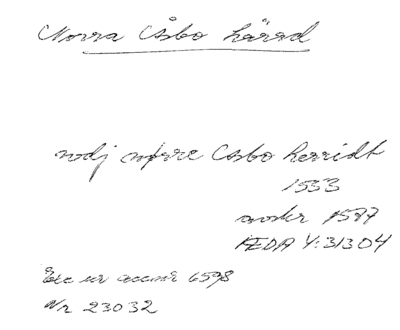 Norra Åsbo härad
nodj nørre Asbo herridt
1533
avskr 1597
FEDA Y:31304
Exc ur accnr 6598
Nr 23032